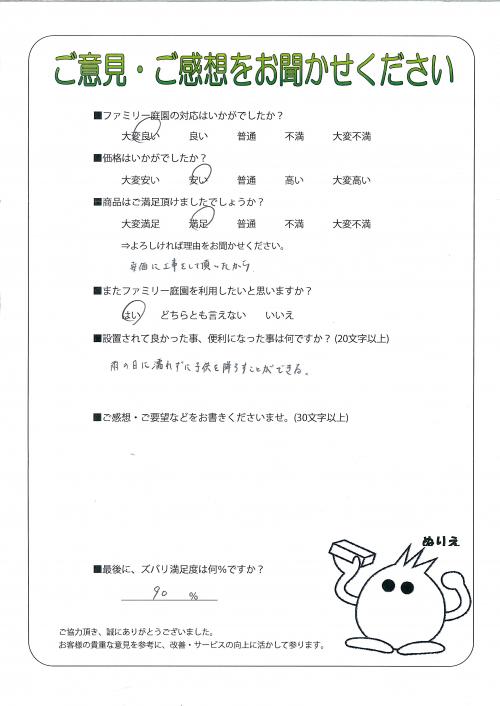 ご意見・ご感想をお聞かせください
■ファミリー庭園の対応はいかがでしたか？
大変良い 良い 普通 不満 大変不満
■価格はいかがでしたか？
大変安い 安い 普通 高い 大変高い
■商品はご満足頂けましたでしょうか？
大変満足 満足 普通 不満 大変不満
⇒よろしければ理由をお聞かせください。
に工事をして頂ったから
■またファミリー庭園を利用したいと思いますか？
はい どちらとも言えない いいえ
■設置されて良かった事、便利になった事は何ですか？(20文字以上)
雨の日に濡れずに子供を降ろすことができる。
■ご感想・ご要望などをお書きくださいませ。(30文字以上)
ぬりえ
■最後に、ズバリ満足度は何％ですか？
90 %
ご協力頂き、誠にありがとうございました。
お客様の貴重な意見を参考に、改善・サービスの向上に活かして参ります。